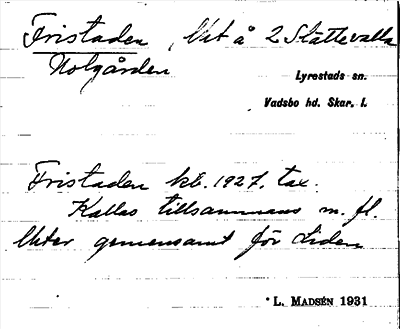 Fristaden, Ut å 2 Stättevalla
Nolgården
Lyrestads sn.
Vadsbo hd. Skar. l.
Fristaden kb. 1927. tax.
Kallas tillsammans m. fl.
Uter gemensamt för Liden
L. MADSÉN 1931